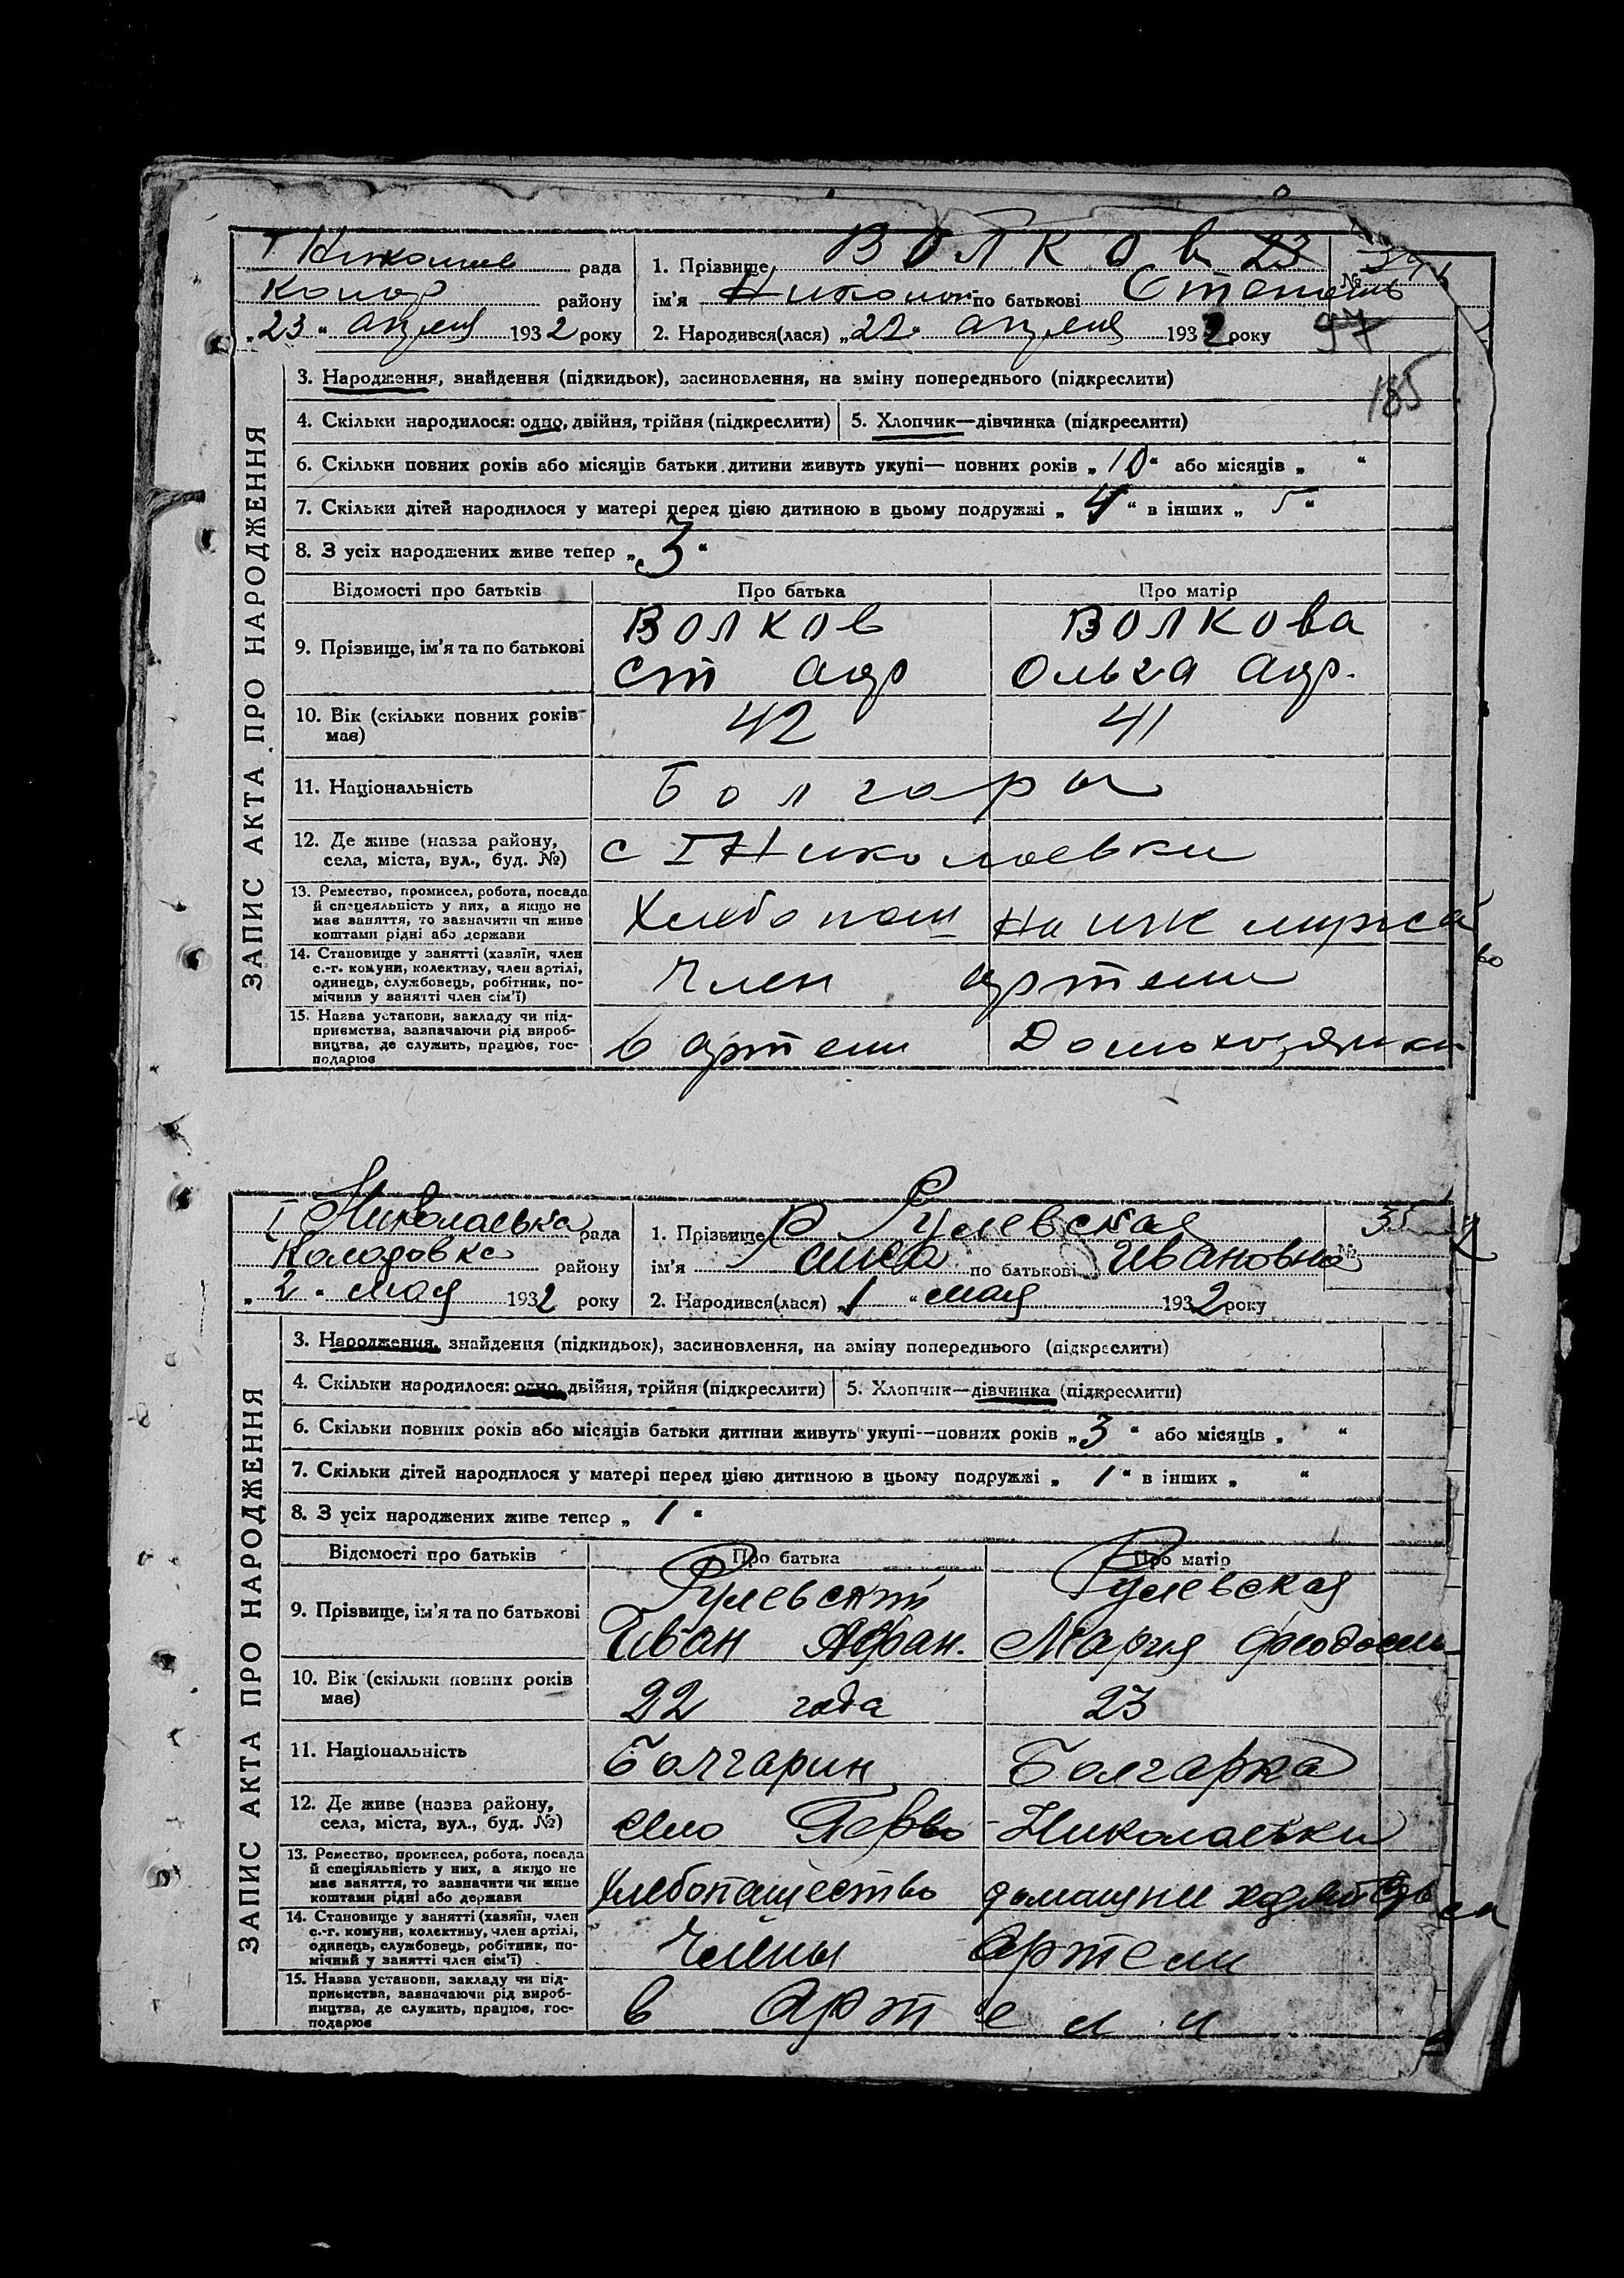 I Николаев рада
Колар району
„23" апреля 1932 року
1. Прізвище Волков 23
№
ім'я Николай по батькові Степань
2. Народився(лася) „22" апреля 1932 року
97
185
ЗАПИС АКТА ПРО НАРОДЖЕННЯ
3. Народження, знайдення (підкидьок), засиновлення, на зміну попереднього (підкреслити)
4. Скільки народилося: одно, двійня, трійня (підкреслити) 5. Хлопчик—дівчинка (підкреслити)
6. Скільки повних років або місяців батьки дитини живуть укупі— повних років „10" або місяців „ "
7. Скільки дітей народилося у матері перед цією дитиною в цьому подружжі „4" в інших „ "
8. З усіх народжених живе тепер „3"
Відомості про батьків Про батька Про матір
9. Прізвище, ім'я та по батькові
Волков Волкова
Ст Андр Ольга Андр.
10. Вік (скільки повних років має) 42 41
11. Національність Болгары
12. Де живе (назва району, села, міста, вул., буд. №) с I Николаевки
13. Ремество, промисел, робота, посада
й спеціяльність у них, а якщо не
має заняття, то зазначити чи живе
коштами рідні або держави
Хлебопаш На иж мужа
14. Становище у занятті (хазяїн, член
с.-г. комуни, колективу, член артілі,
одинець, службовець, робітник, по-
мічний у занятті член сім'ї)
Член артели
15. Назва установи, закладу чи під-
приємства, зазначаючи рід вироб-
ництва, де служить, працює, гос-
подарює
в артели Домохозяйки
I Николаевка рада
Колоровка району
„2" мая 1932 року
1. Прізвище Рулевская
35
№
ім'я по батькові Ивановна
2. Народився(лася) „1" мая 1932 року
ЗАПИС АКТА ПРО НАРОДЖЕННЯ
3. Народження, знайдення (підкидьок), засиновлення, на зміну попереднього (підкреслити)
4. Скільки народилося: одно, двійня, трійня (підкреслити) 5. Хлопчик—дівчинка (підкреслити)
6. Скільки повних років або місяців батьки дитини живуть укупі—повних років „3" або місяців „ "
7. Скільки дітей народилося у матері перед цією дитиною в цьому подружжі „1" в інших „ "
8. З усіх народжених живе тепер „1"
Відомості про батьків Про батька Про матір
9. Прізвище, ім'я та по батькові
Рулевский Рулевская
Иван Афан. Мария Феодоси
10. Вік (скільки повних років має) 22 года 23
11. Національність Болгарин Болгарка
12. Де живе (назва району, села, міста, вул., буд. №) село Перво-Николаевки
13. Ремество, промисел, робота, посада
й спеціяльність у них, а якщо не
має заняття, то зазначити чи живе
коштами рідні або держави
Хлебопашество домашнее
14. Становище у занятті (хазяїн, член
с.-г. комуни, колективу, член артілі,
одинець, службовець, робітник, по-
мічний у занятті член сім'ї)
Члены Артели
15. Назва установи, закладу чи під-
приємства, зазначаючи рід вироб-
ництва, де служить, працює, гос-
подарює
в Артели